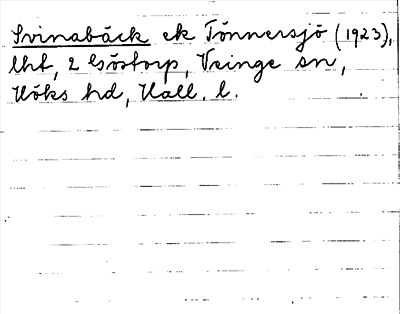 Svinabäck ek Tönnersjö (1923),
lht, 2 Göstorp, Veinge sn,
Höks hd, Hall. l.